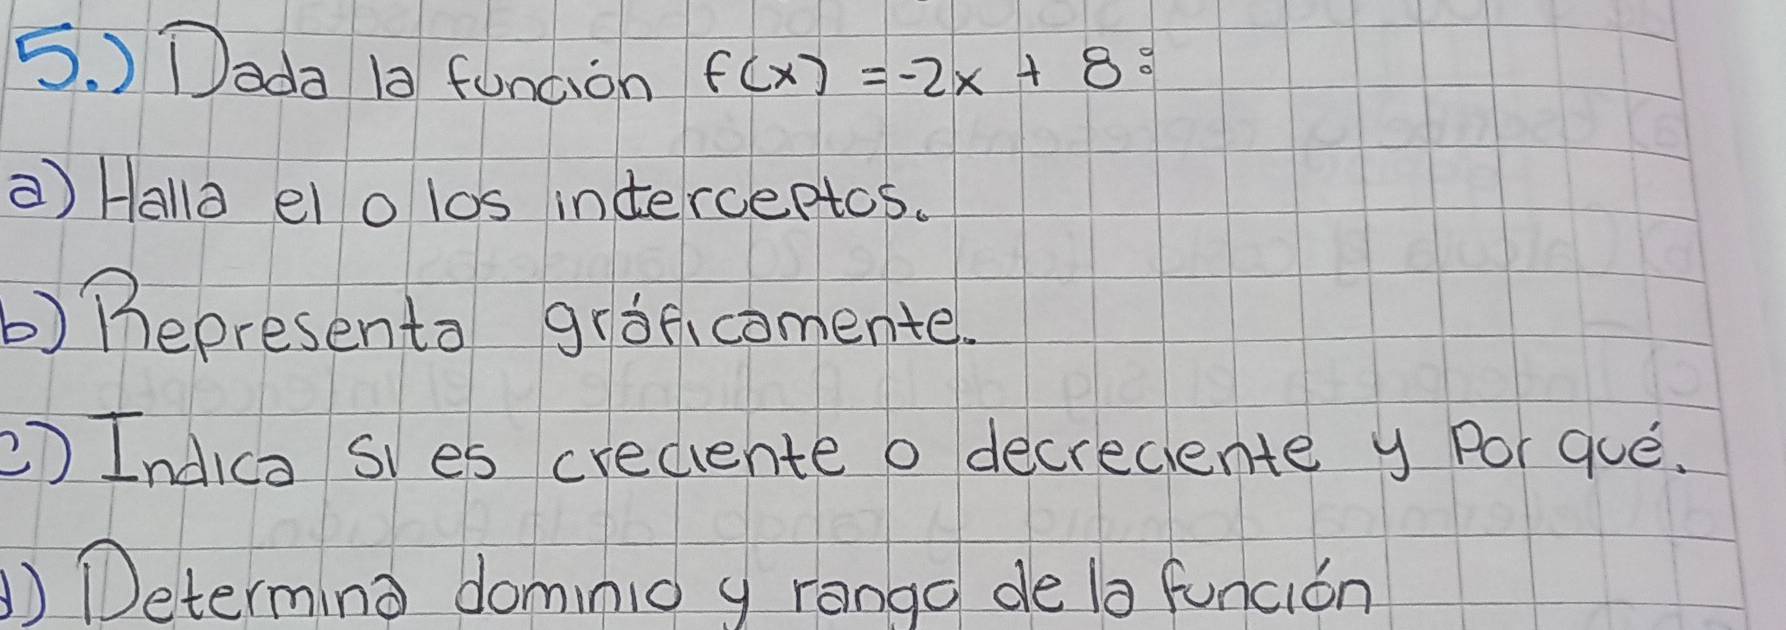 5.) Dada la función f(x) = -2x + 8:
a) Halla el o los interceptos.
b) Representa gráficamente.
c) Indica si es creciente o decreciente y por qué.
d) Determina dominio y rango de la función